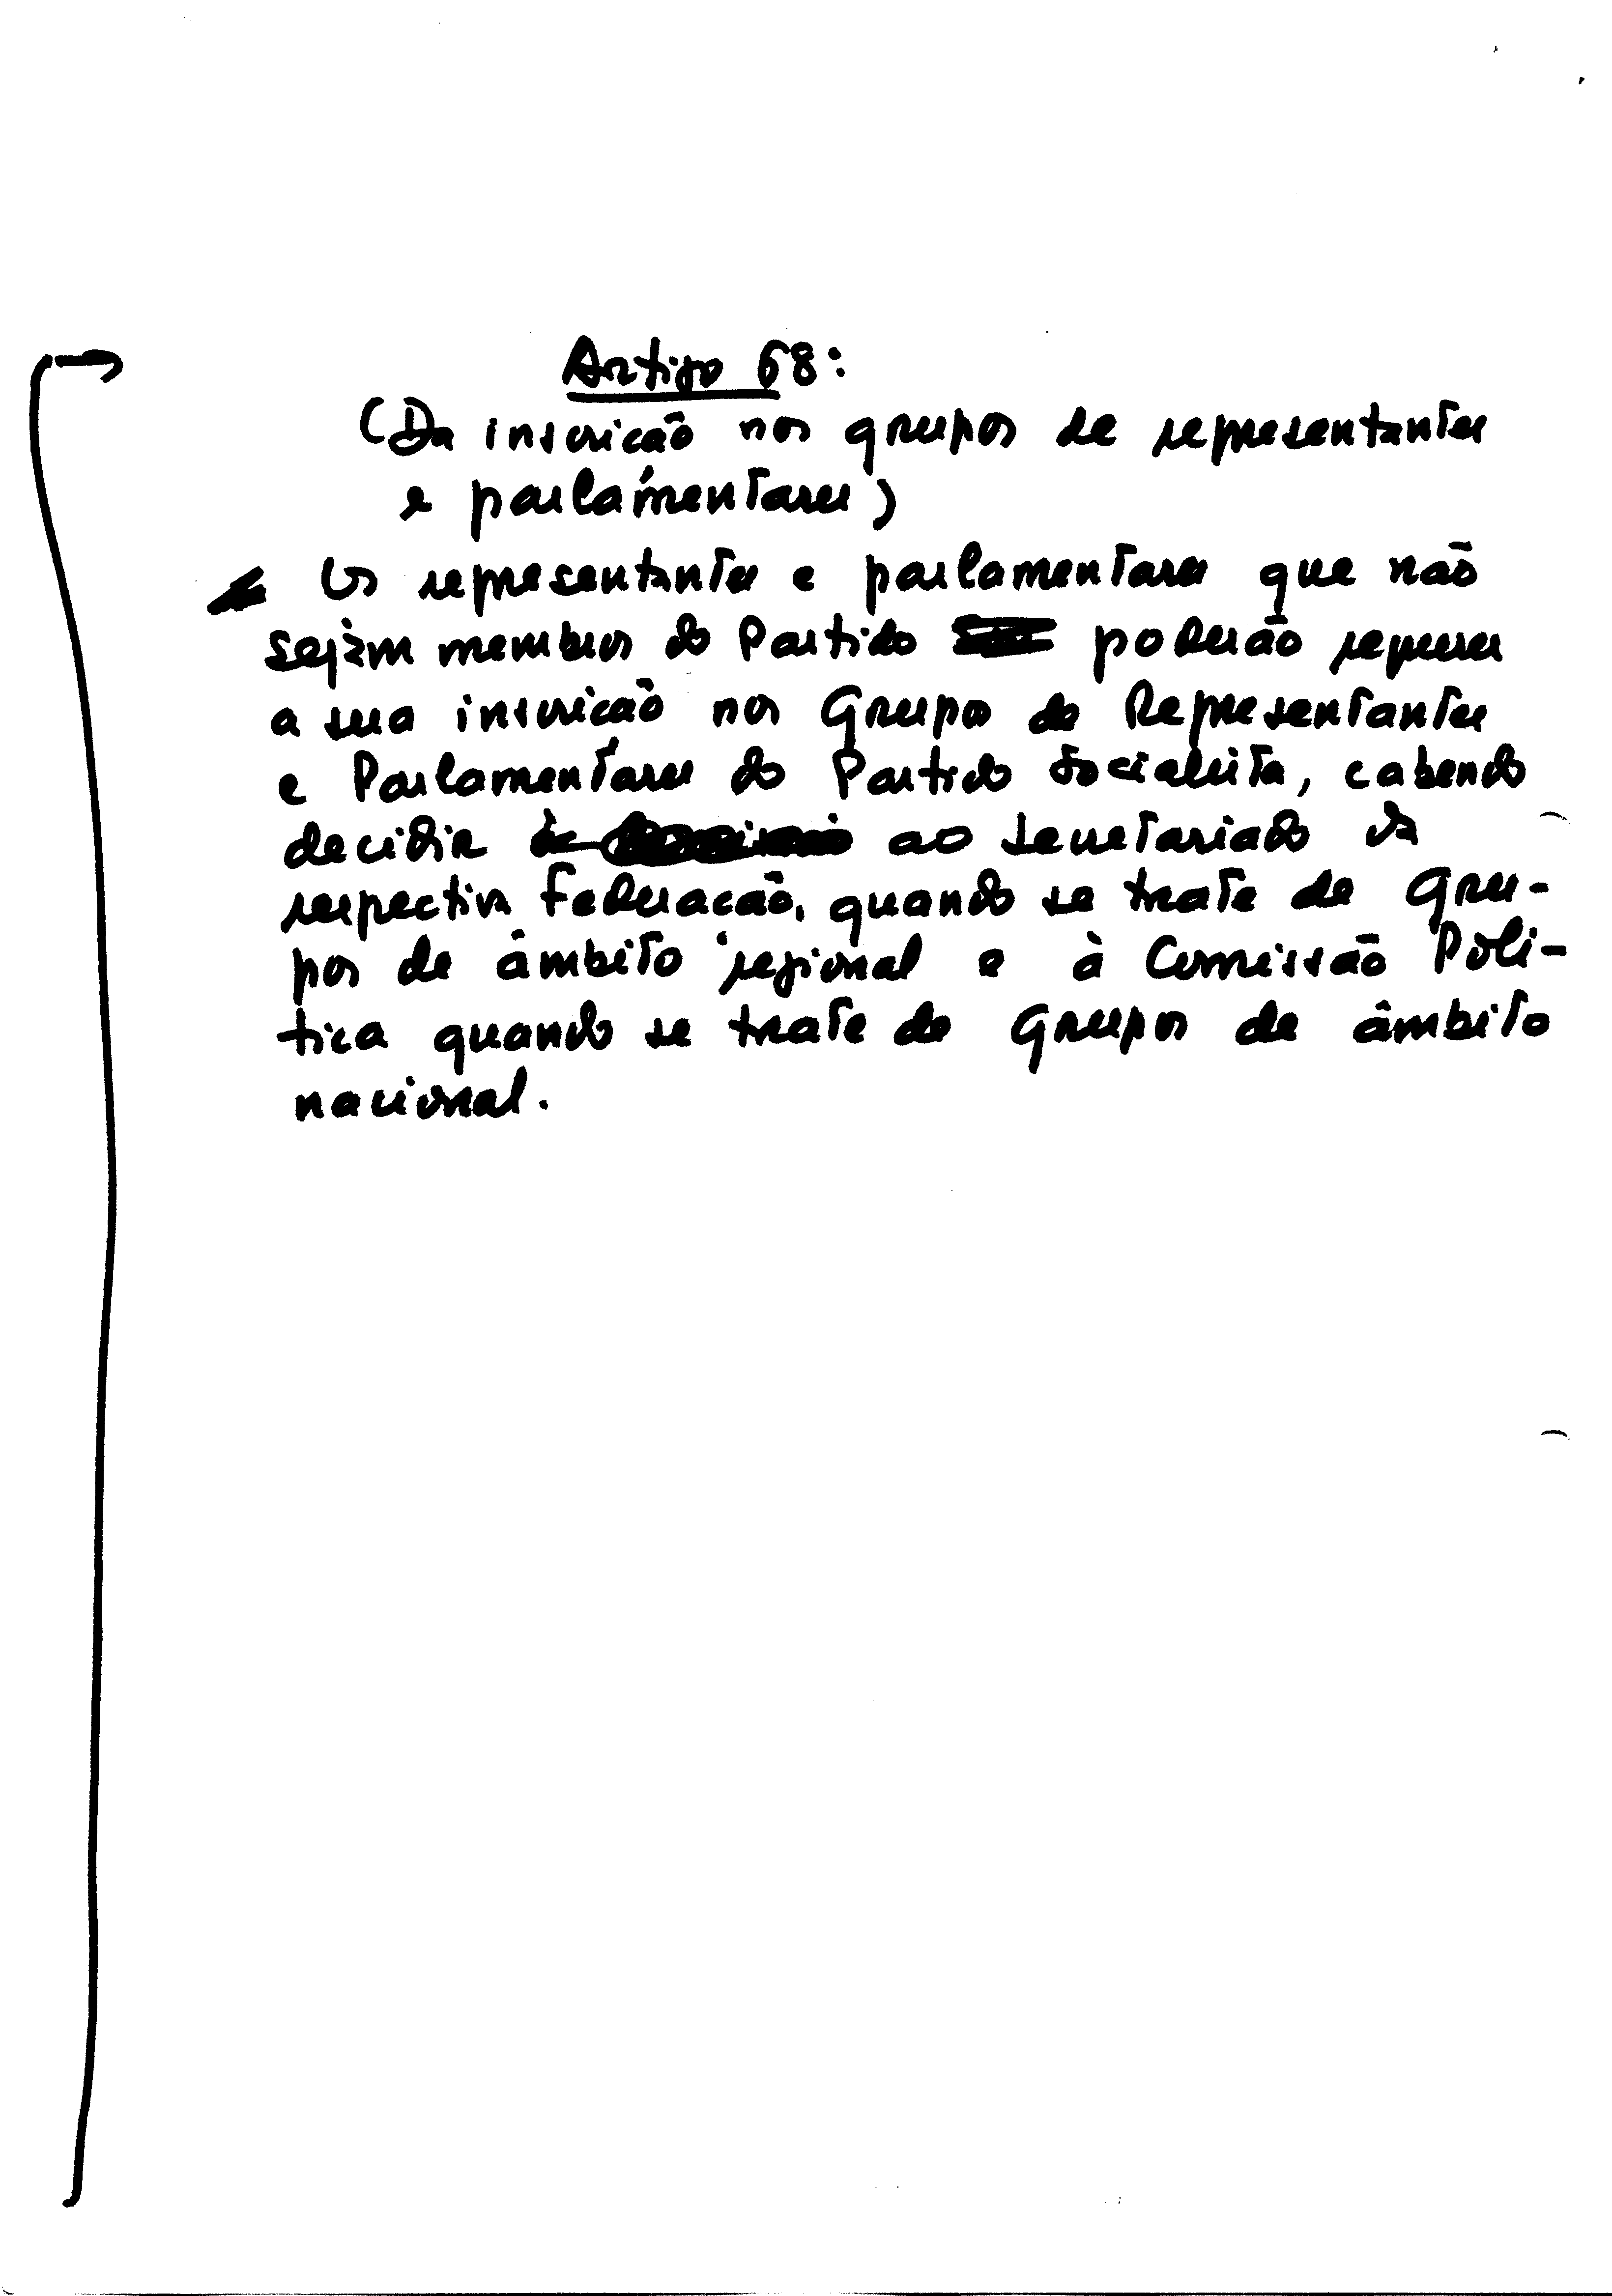 Artigo 68:
(Da inscrição nos grupos de representantes
e parlamentares)
Os representantes e parlamentares que não
sejam membros do Partido poderão requerer
a sua inscrição nos Grupos de Representantes
e Parlamentares do Partido Socialista, cabendo
decidir ao Secretariado da
respectiva Federação, quando se trate de Gru-
pos de âmbito regional e à Comissão Polí-
tica quando se trate de Grupos de âmbito
nacional.